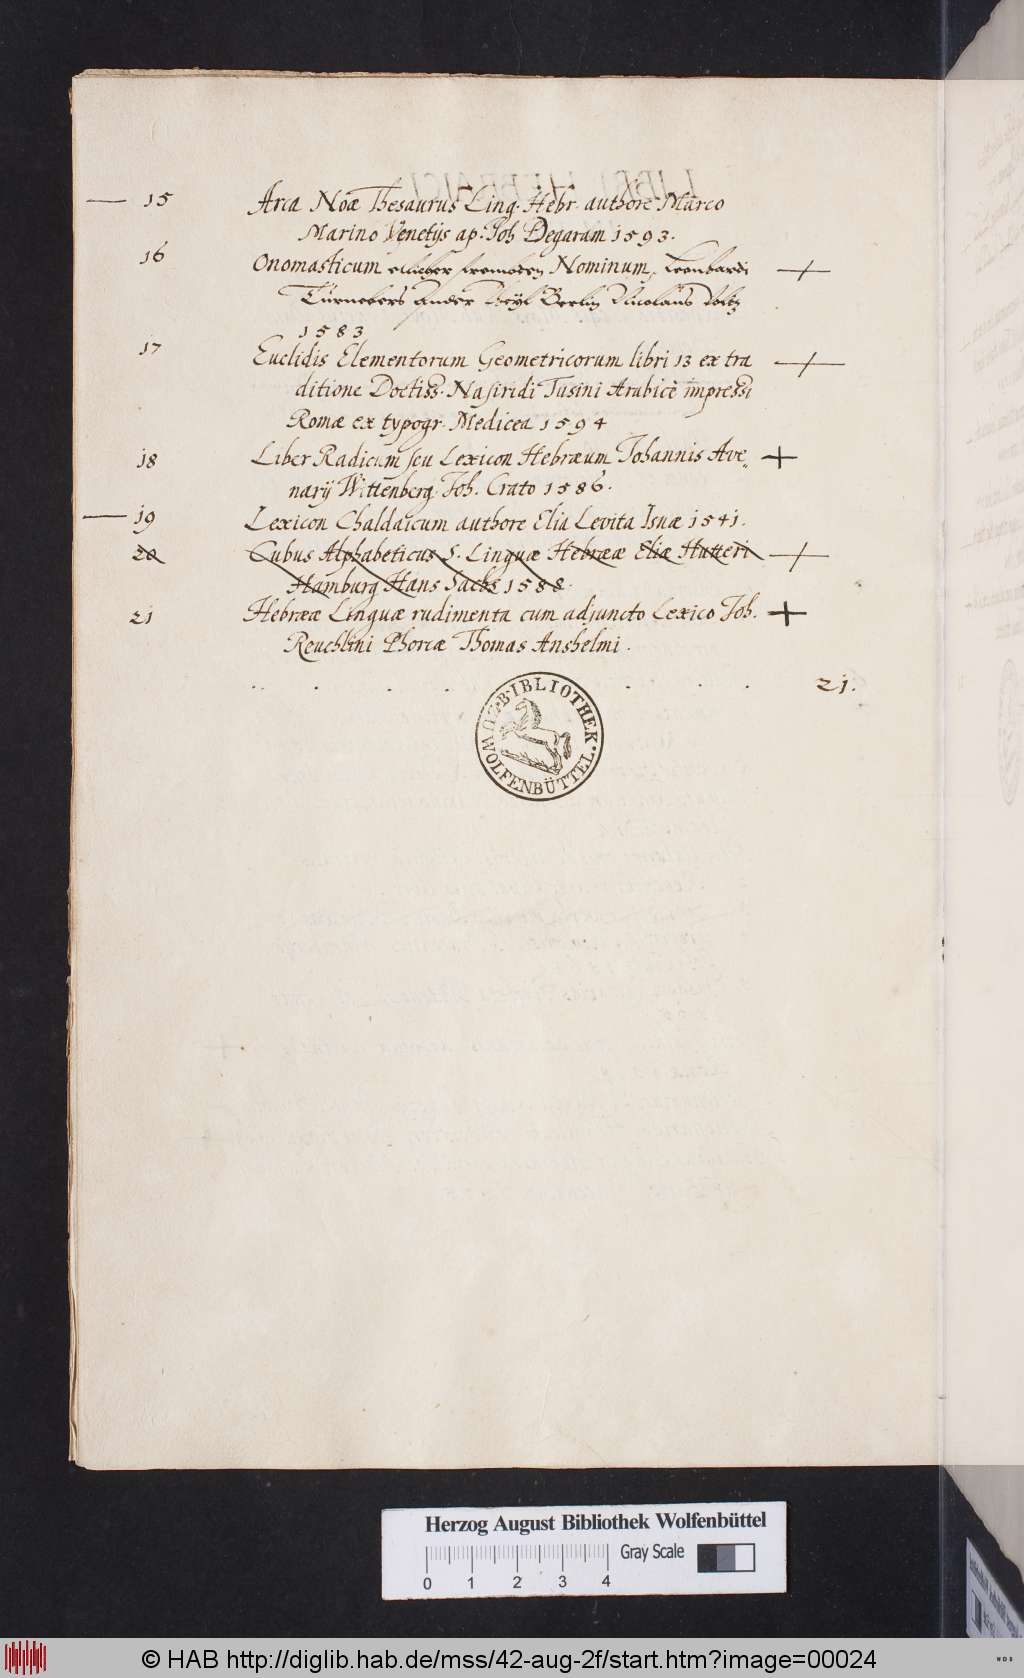 15 Arca Noæ Thesaurus Ling. Hebr. authore Marco
Marino Venetijs ap: Joh Degaram 1593.
16 Onomasticum etlicher frembden Nominum, Leonhardi
Turneßers ander Theyl Berlin Nicolaus Voltz
1583
17 Euclidis Elementorum Geometricorum libri 13 ex tra
ditione Doctiss. Nasiridi Tusini Arabicè impressi
Romæ ex typogr. Medicea 1594
18 Liber Radicum seu Lexicon Hebræum Johannis Ave„
narij Wittenberg Joh. Crato 1586.
19 Lexicon Chaldaicum authore Elia Levita Isnæ 1541.
20 Cubus Alphabeticus S. Linguæ Hebrææ Eliæ Hutteri
Hamburg Hans Sachs 1588.
21 Hebrææ Linguæ rudimenta cum adjuncto Lexico Joh.
Reuchlini Phorcæ Thomas Anshelmi.
21.
HERZOG BIBLIOTHEK
WOLFENBÜTTEL.
Herzog August Bibliothek Wolfenbüttel
Gray Scale
0 1 2 3 4
© HAB http://diglib.hab.de/mss/42-aug-2f/start.htm?image=00024